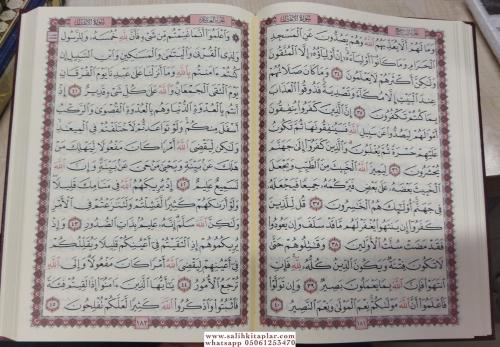 سُورَةُ الْاَنْفَالِ
وَمَا لَهُمْ اَلَّا يُعَذِّبَهُمُ اللّٰهُ وَهُمْ يَصُدُّونَ عَنِ الْمَسْجِدِ
الْحَرَامِ وَمَا كَانُٓوا اَوْلِيَٓاءَهُ اِنْ اَوْلِيَٓاؤُهُٓ اِلَّا الْمُتَّقُونَ
وَلٰكِنَّ اَكْثَرَهُمْ لَا يَعْلَمُونَ ﴿٣٤﴾ وَمَا كَانَ صَلَاتُهُمْ
عِنْدَ الْبَيْتِ اِلَّا مُكَٓاءً وَتَصْدِيَةً فَذُوقُوا الْعَذَابَ
بِمَا كُنْتُمْ تَكْفُرُونَ ﴿٣٥﴾ اِنَّ الَّذِينَ كَفَرُوا يُنْفِقُونَ
اَمْوَالَهُمْ لِيَصُدُّوا عَنْ سَبِيلِ اللّٰهِ فَسَيُنْفِقُونَهَا ثُمَّ تَكُونُ
عَلَيْهِمْ حَسْرَةً ثُمَّ يُغْلَبُونَ وَالَّذِينَ كَفَرُٓوا اِلٰى جَهَنَّمَ
يُحْشَرُونَ ﴿٣٦﴾ لِيَمِيزَ اللّٰهُ الْخَبِيثَ مِنَ الطَّيِّبِ وَيَجْعَلَ
الْخَبِيثَ بَعْضَهُ عَلٰى بَعْضٍ فَيَرْكُمَهُ جَمِيعًا فَيَجْعَلَهُ
فِي جَهَنَّمَ اُولٰٓئِكَ هُمُ الْخَاسِرُونَ ﴿٣٧﴾ قُلْ لِلَّذِينَ
كَفَرُٓوا اِنْ يَنْتَهُوا يُغْفَرْ لَهُمْ مَا قَدْ سَلَفَ وَاِنْ يَعُودُوا
فَقَدْ مَضَتْ سُنَّتُ الْاَوَّلِينَ ﴿٣٨﴾ وَقَاتِلُوهُمْ حَتّٰى
لَا تَكُونَ فِتْنَةٌ وَيَكُونَ الدِّينُ كُلُّهُ لِلّٰهِ فَاِنِ
انْتَهَوْا فَاِنَّ اللّٰهَ بِمَا يَعْمَلُونَ بَصِيرٌ ﴿٣٩﴾ وَاِنْ تَوَلَّوْا
فَاعْلَمُٓوا اَنَّ اللّٰهَ مَوْلٰيكُمْ نِعْمَ الْمَوْلٰى وَنِعْمَ النَّصِيرُ ﴿٤٠﴾
١٨١
سُورَةُ الْاَنْفَالِ
وَاعْلَمُٓوا اَنَّمَا غَنِمْتُمْ مِنْ شَيْءٍ فَاَنَّ لِلّٰهِ خُمُسَهُ وَلِلرَّسُولِ
وَلِذِي الْقُرْبٰى وَالْيَتَامٰى وَالْمَسَاكِينِ وَابْنِ السَّبِيلِ اِنْ
كُنْتُمْ اٰمَنْتُمْ بِاللّٰهِ وَمَٓا اَنْزَلْنَا عَلٰى عَبْدِنَا يَوْمَ الْفُرْقَانِ
يَوْمَ الْتَقَى الْجَمْعَانِ وَاللّٰهُ عَلٰى كُلِّ شَيْءٍ قَدِيرٌ ﴿٤١﴾ اِذْ
اَنْتُمْ بِالْعُدْوَةِ الدُّنْيَا وَهُمْ بِالْعُدْوَةِ الْقُصْوٰى وَالرَّكْبُ
اَسْفَلَ مِنْكُمْ وَلَوْ تَوَاعَدْتُمْ لَاخْتَلَفْتُمْ فِي الْمِيعَادِ
وَلٰكِنْ لِيَقْضِيَ اللّٰهُ اَمْرًا كَانَ مَفْعُولًا لِيَهْلِكَ مَنْ
هَلَكَ عَنْ بَيِّنَةٍ وَيَحْيٰى مَنْ حَيَّ عَنْ بَيِّنَةٍ وَاِنَّ اللّٰهَ
لَسَمِيعٌ عَلِيمٌ ﴿٤٢﴾ اِذْ يُرِيكَهُمُ اللّٰهُ فِي مَنَامِكَ قَلِيلًا
وَلَوْ اَرٰيكَهُمْ كَثِيرًا لَفَشِلْتُمْ وَلَتَنَازَعْتُمْ فِي الْاَمْرِ
وَلٰكِنَّ اللّٰهَ سَلَّمَ اِنَّهُ عَلِيمٌ بِذَاتِ الصُّدُورِ ﴿٤٣﴾ وَاِذْ
يُرِيكُمُوهُمْ اِذِ الْتَقَيْتُمْ فِٓي اَعْيُنِكُمْ قَلِيلًا وَيُقَلِّلُكُمْ
فِٓي اَعْيُنِهِمْ لِيَقْضِيَ اللّٰهُ اَمْرًا كَانَ مَفْعُولًا وَاِلَى اللّٰهِ
تُرْجَعُ الْاُمُورُ ﴿٤٤﴾ يَٓا اَيُّهَا الَّذِينَ اٰمَنُٓوا اِذَا لَقِيتُمْ فِئَةً
فَاثْبُتُوا وَاذْكُرُوا اللّٰهَ كَثِيرًا لَعَلَّكُمْ تُفْلِحُونَ ﴿٤٥﴾
١٨٢
www.salihkitaplar.com
whatsapp 05061253470